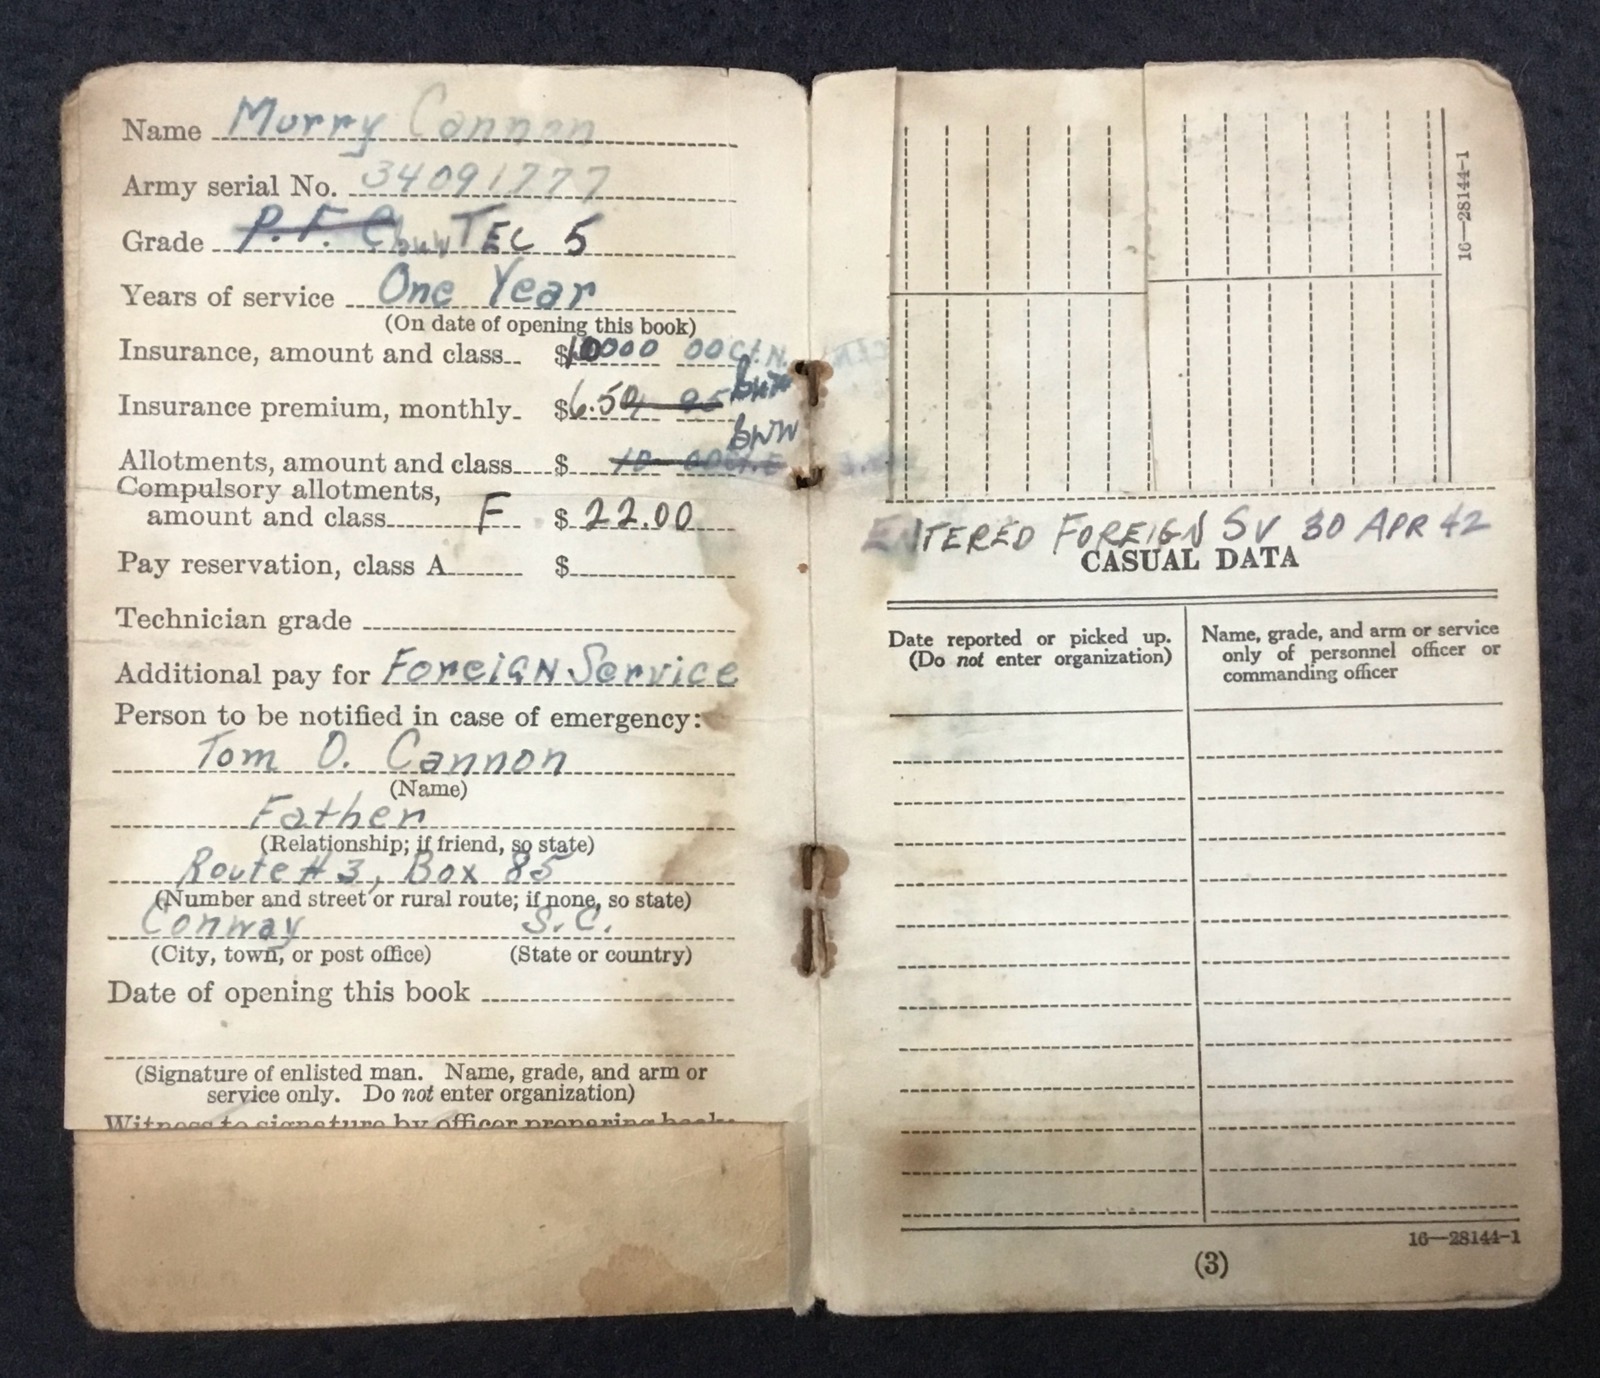 Name Murry Cannon
Army serial No. 34091777
Grade P.F.C. TEC 5
Years of service One Year
(On date of opening this book)
Insurance, amount and class $10000 00 Cl. N.
Insurance premium, monthly $6.50 95
Allotments, amount and class $ 10 00 Cl. E
Compulsory allotments,
amount and class F $ 22.00
Pay reservation, class A $
Technician grade
Additional pay for Foreign Service
Person to be notified in case of emergency:
Tom O. Cannon
(Name)
Father
(Relationship; if friend, so state)
Route #3, Box 85
(Number and street or rural route; if none, so state)
Conway S.C.
(City, town, or post office) (State or country)
Date of opening this book
(Signature of enlisted man. Name, grade, and arm or
service only. Do not enter organization)
Witness to signature by officer preparing book:
16—28144-1
ENTERED FOREIGN SV 30 APR 42
CASUAL DATA
Date reported or picked up.
(Do not enter organization)
Name, grade, and arm or service
only of personnel officer or
commanding officer
16—28144-1
(3)